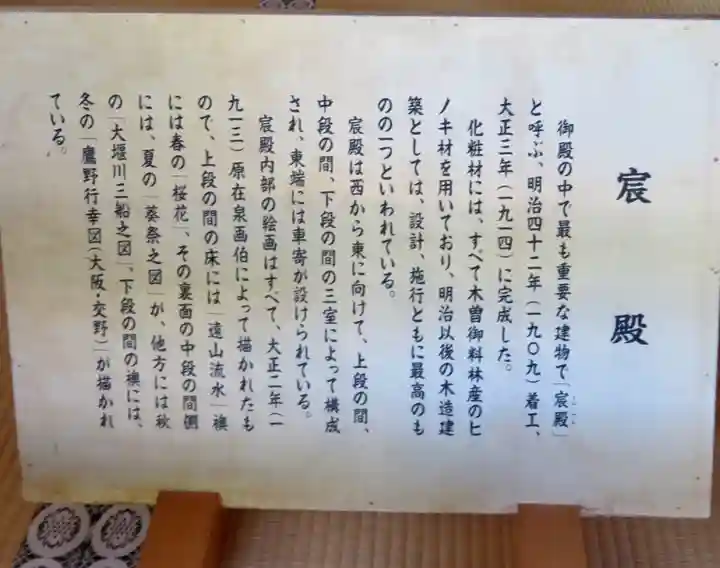 宸殿
御殿の中で最も重要な建物で「宸殿」
と呼ぶ、明治四十二年（一九〇九）着工、
大正三年（一九一四）に完成した。
化粧材には、すべて木曽御料林産のヒ
ノキ材を用いており、明治以後の木造建
築としては、設計、施行ともに最高のも
のの一つといわれている。
宸殿は西から東に向けて、上段の間、
中段の間、下段の間の三室によって構成
され、東端には車寄が設けられている。
宸殿内部の絵画はすべて、大正二年（一
九一三）原在泉画伯によって描かれたも
ので、上段の間の床には「遠山流水」襖
には春の「桜花」、その裏面の中段の間側
には、夏の「葵祭之図」が、他方には秋
の「大堰川三船之図」、下段の間の襖には、
冬の「鷹野行幸図（大阪・交野）が描かれ
ている。